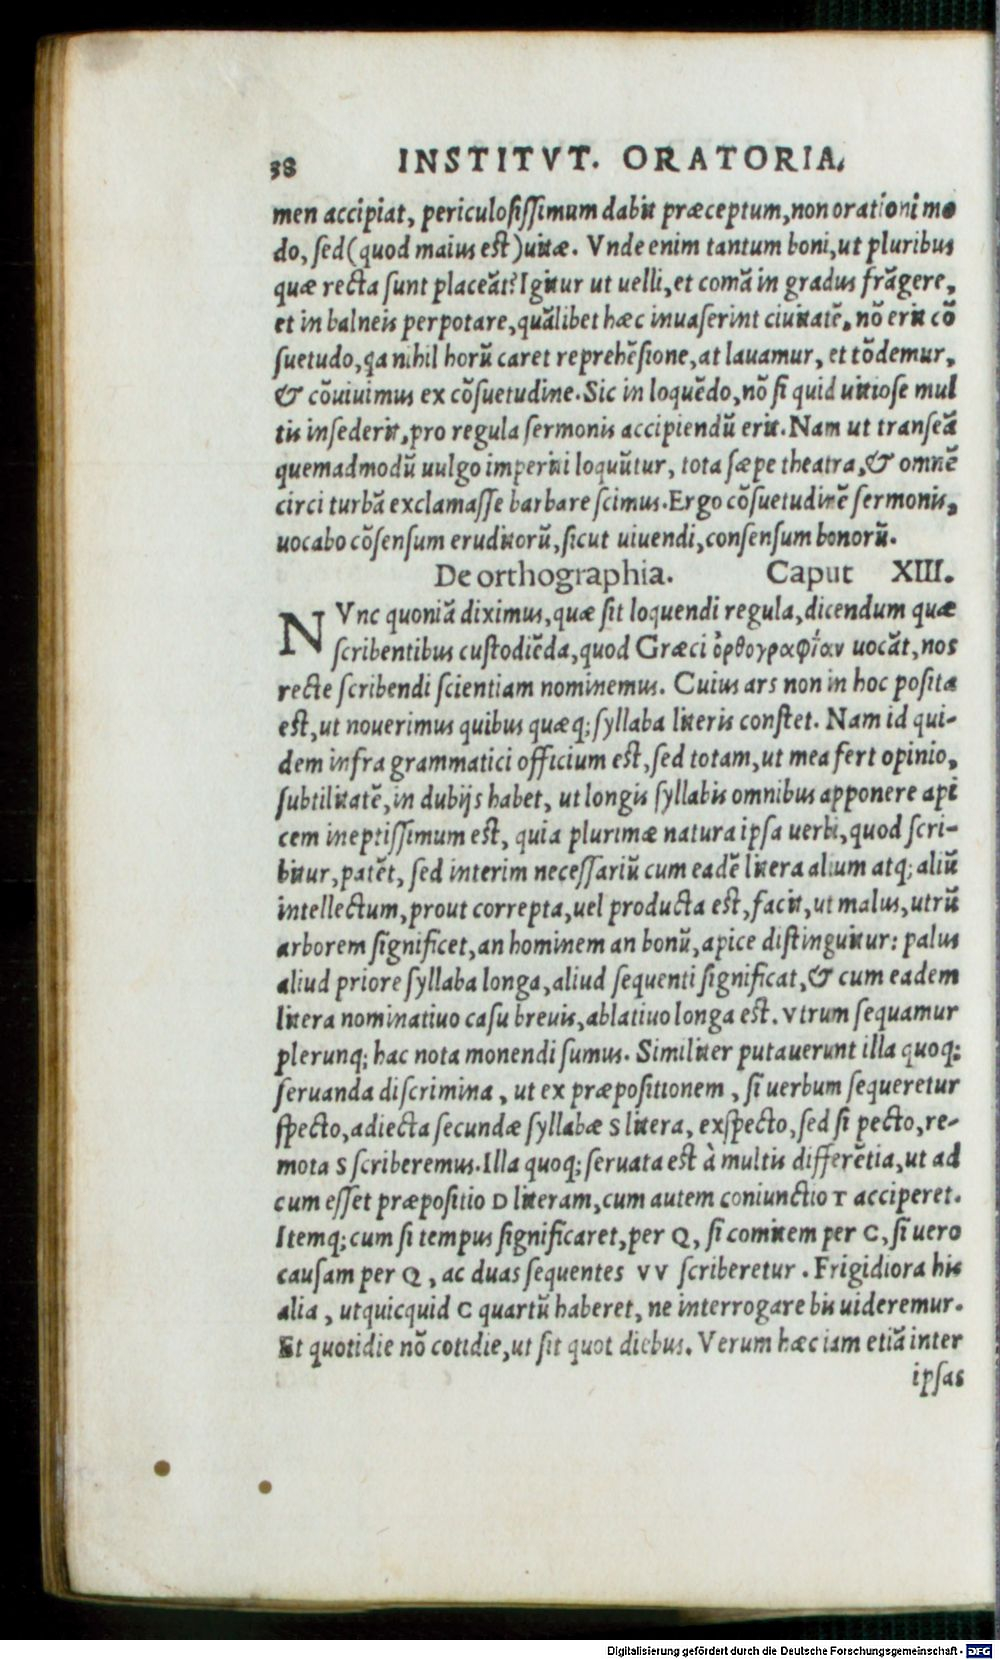 38 INSTITVT. ORATORIA.
men accipiat, periculoſiſſimum dabit præceptum, non orationi mo
do, ſed (quod maius eſt) uitæ. Vnde enim tantum boni, ut pluribus
quæ recta ſunt placeãt? Igitur ut uelli, et comã in gradus frãgere,
et in balneis perpotare, quãlibet hæc inuaſerint ciuitatẽ, nõ erit cõ
ſuetudo, qa nihil horũ caret reprehẽſione, at lauamur, et tõdemur,
& cõuiuimus ex cõſuetudine. Sic in loquẽdo, nõ ſi quid uitioſe mul
tis inſederit, pro regula ſermonis accipiendũ erit. Nam ut tranſeã
quemadmodũ uulgo imperiti loquũtur, tota ſæpe theatra, & omnẽ
circi turbã exclamaſſe barbare ſcimus. Ergo cõſuetudinẽ ſermonis,
uocabo cõſenſum eruditorũ, ſicut uiuendi, conſenſum bonorũ.
De orthographia. Caput XIII.
NVnc quoniã diximus, quæ ſit loquendi regula, dicendum quæ
ſcribentibus cuſtodiẽda, quod Græci ὀρθογραφίαν uocãt, nos
recte ſcribendi ſcientiam nominemus. Cuius ars non in hoc poſita
eſt, ut nouerimus quibus quæq; ſyllaba literis conſtet. Nam id qui-
dem infra grammatici officium eſt, ſed totam, ut mea fert opinio,
ſubtilitatẽ, in dubijs habet, ut longis ſyllabis omnibus apponere api
cem ineptiſſimum eſt, quia plurimæ natura ipſa uerbi, quod ſcri-
bitur, patẽt, ſed interim neceſſariũ cum eadẽ litera alium atq; aliũ
intellectum, prout correpta, uel producta eſt, facit, ut malus, utrũ
arborem ſignificet, an hominem an bonũ, apice diſtinguitur: palus
aliud priore ſyllaba longa, aliud ſequenti ſignificat, & cum eadem
litera nominatiuo caſu breuis, ablatiuo longa eſt. vtrum ſequamur
plerunq; hac nota monendi ſumus. Similiter putauerunt illa quoq;
ſeruanda diſcrimina, ut ex præpoſitionem, ſi uerbum ſequeretur
ſpecto, adiecta ſecundæ ſyllabæ S litera, exſpecto, ſed ſi pecto, re-
mota S ſcriberemus. Illa quoq; ſeruata eſt à multis differẽtia, ut ad
cum eſſet præpoſitio D literam, cum autem coniunctio T acciperet.
Itemq; cum ſi tempus ſignificaret, per Q, ſi comitem per C, ſi uero
cauſam per Q, ac duas ſequentes VV ſcriberetur. Frigidiora his
alia, utquicquid C quartũ haberet, ne interrogare bis uideremur.
Et quotidie nõ cotidie, ut ſit quot diebus. Verum hæc iam etiã inter
ipſas
Digitalisierung gefördert durch die Deutsche Forschungsgemeinschaft - DFG